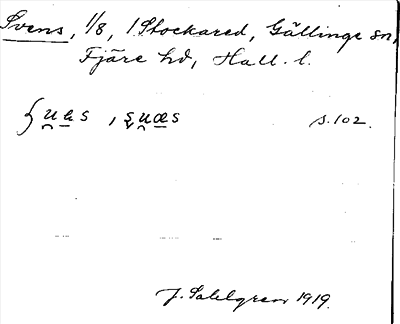 Svens, 1/8, 1 Stockared, Gällinge sn,
Fjäre hd, Hall. l.
s. 102.
J. Sahlgren 1919.